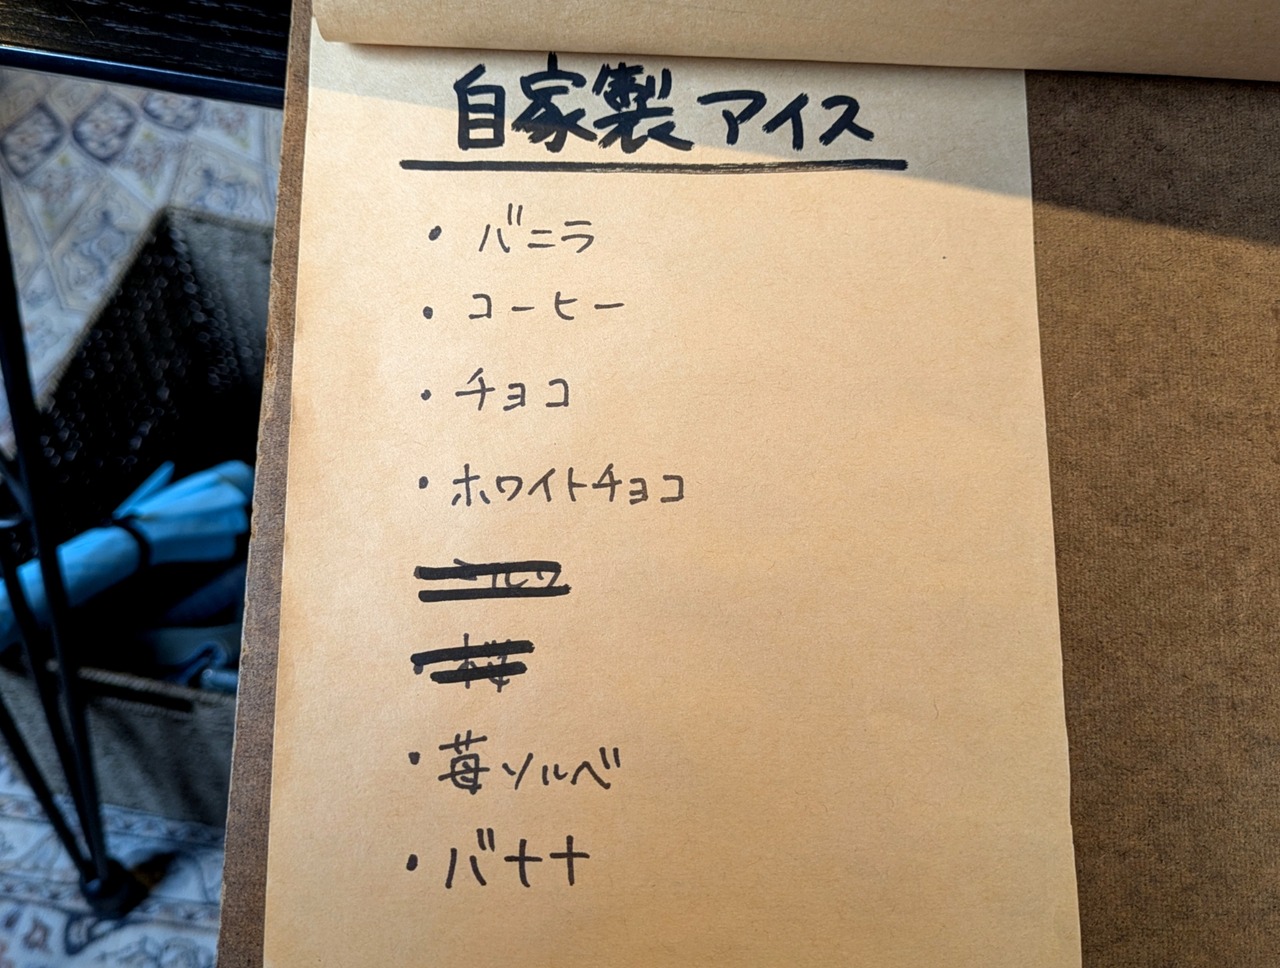 自家製アイス
・バニラ
・コーヒー
・チョコ
・ホワイトチョコ
・苺ソルベ
・バナナ